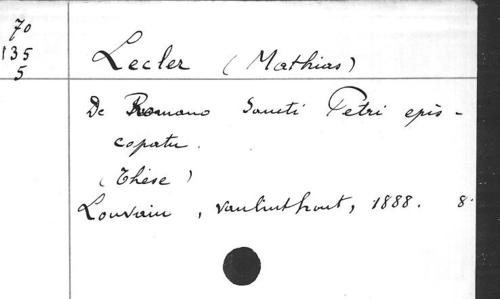 70
135
5
Lecler (Mathias)
De Romano Sancti Petri epis-
copatu.
(Thèse)
Louvain, vanlinthout, 1888. 8°